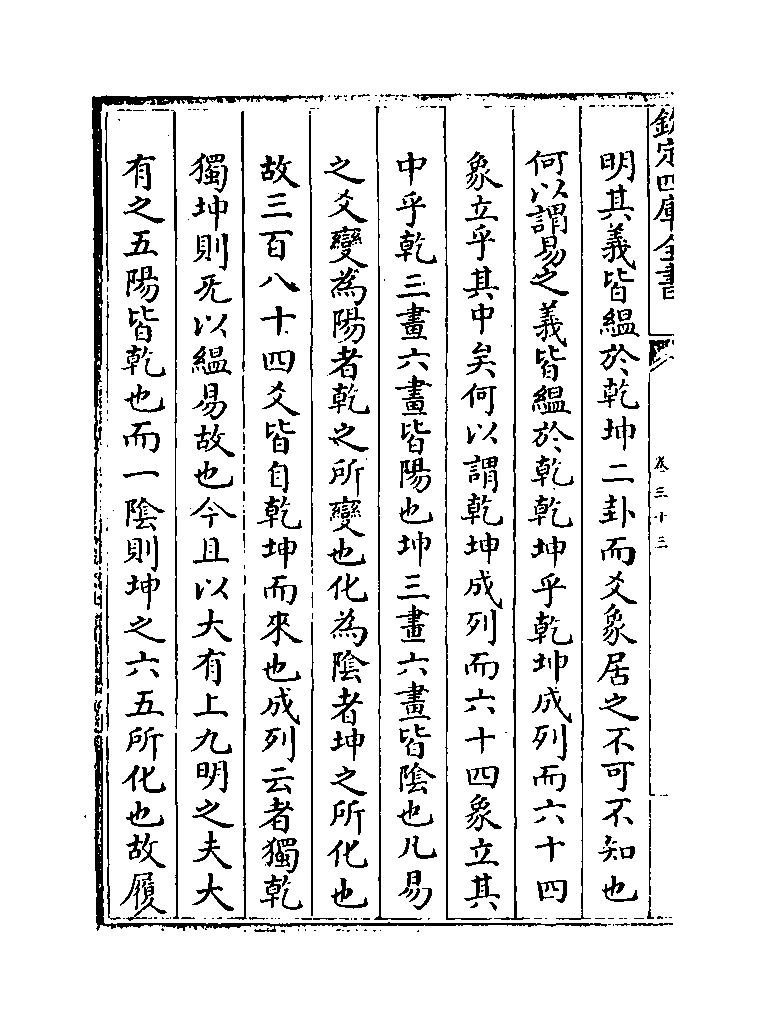 欽定四庫全書
卷三十三
明其義皆縕於乾坤二卦而爻象居之不可不知也
何以謂易之義皆縕於乾乾坤乎乾坤成列而六十四
象立乎其中矣何以謂乾坤成列而六十四象立其
中乎乾三畫六畫皆陽也坤三畫六畫皆陰也凡易
之爻變為陽者乾之所變也化為陰者坤之所化也
故三百八十四爻皆自乾坤而來也成列云者獨乾
獨坤則旡以縕易故也今且以大有上九明之夫大
有之五陽皆乾也而一陰則坤之六五所化也故履